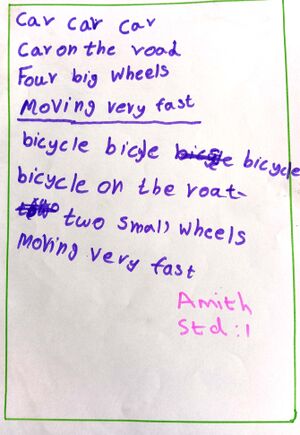 Car car car
Car on the road
Four big wheels
Moving very fast
bicycle bicyle bicycle
bicycle on the roat
two small wheels
Moving very fast
Amith
Std : 1